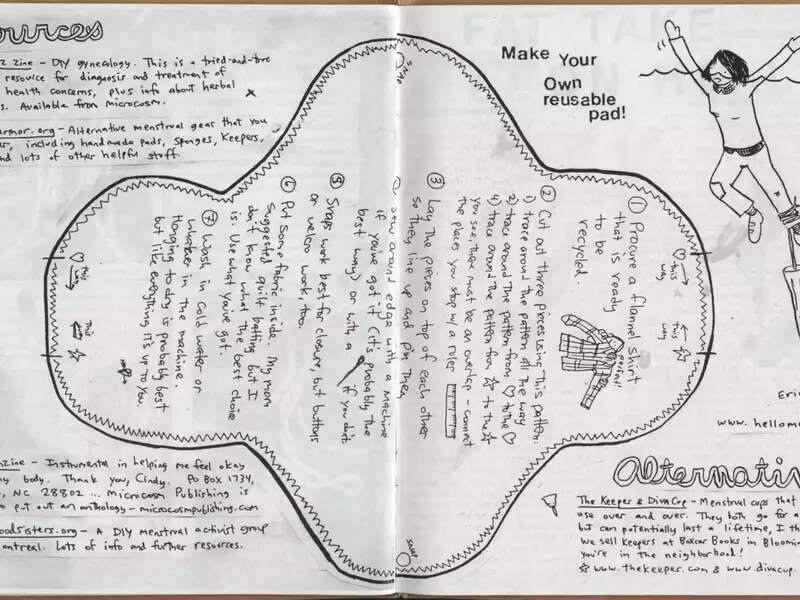 ources
zine – DIY gynecology. This is a tried-and-true
resource for diagnosis and treatment of
health concerns, plus info about herbal
s. Available from microcosm.
armor.org – Alternative menstrual gear that you
, including handmade pads, sponges, keepers,
nd lots of other helpful stuff.
Make Your
Own
reusable
pad!
snap
① Procure a flannel shirt
that is ready
to be
recycled.
② Cut out three pieces using this pattern:
1) trace around the pattern all the way
2) trace around the pattern from ♡ to the ♡
4) trace around the pattern from ☆ to the ☆
you see, there must be an overlap – connect
the places you stop w/ a ruler
③ Lay the pieces on top of each other
so they line up and pin them
sew around edge with a machine
if you've got it (it's probably the
best way) or with a if you don't.
⑤ Snaps work best for closure, but buttons
or velcro work, too.
⑥ Put some fabric inside. My mom
suggested quilt batting but I
don't know what the best choice
is. Use what you've got.
⑦ Wash in cold water or
whatever in the machine.
Hanging to dry is probably best
but like everything it's up to you
♡ this way
this ☆
♡ this way
this way ☆
snap
zine – Instrumental in helping me feel okay
my body. Thank you, Cindy. PO Box 1734,
, NC 28802 ... Microcosm Publishing is
to put out an anthology – microcosmpublishing.com
oodsisters.org – A DIY menstrual activist group
ontreal. Lots of info and further resources.
Eri
www.hellom
Alternativ
The Keeper & DivaCup – Menstrual cups that
use over and over. They both go for a
but can potentially last a lifetime, I th
We sell keepers at Boxcar Books in Bloomin
you're in the neighborhood!
☆ www.thekeeper.com & www.divacup.